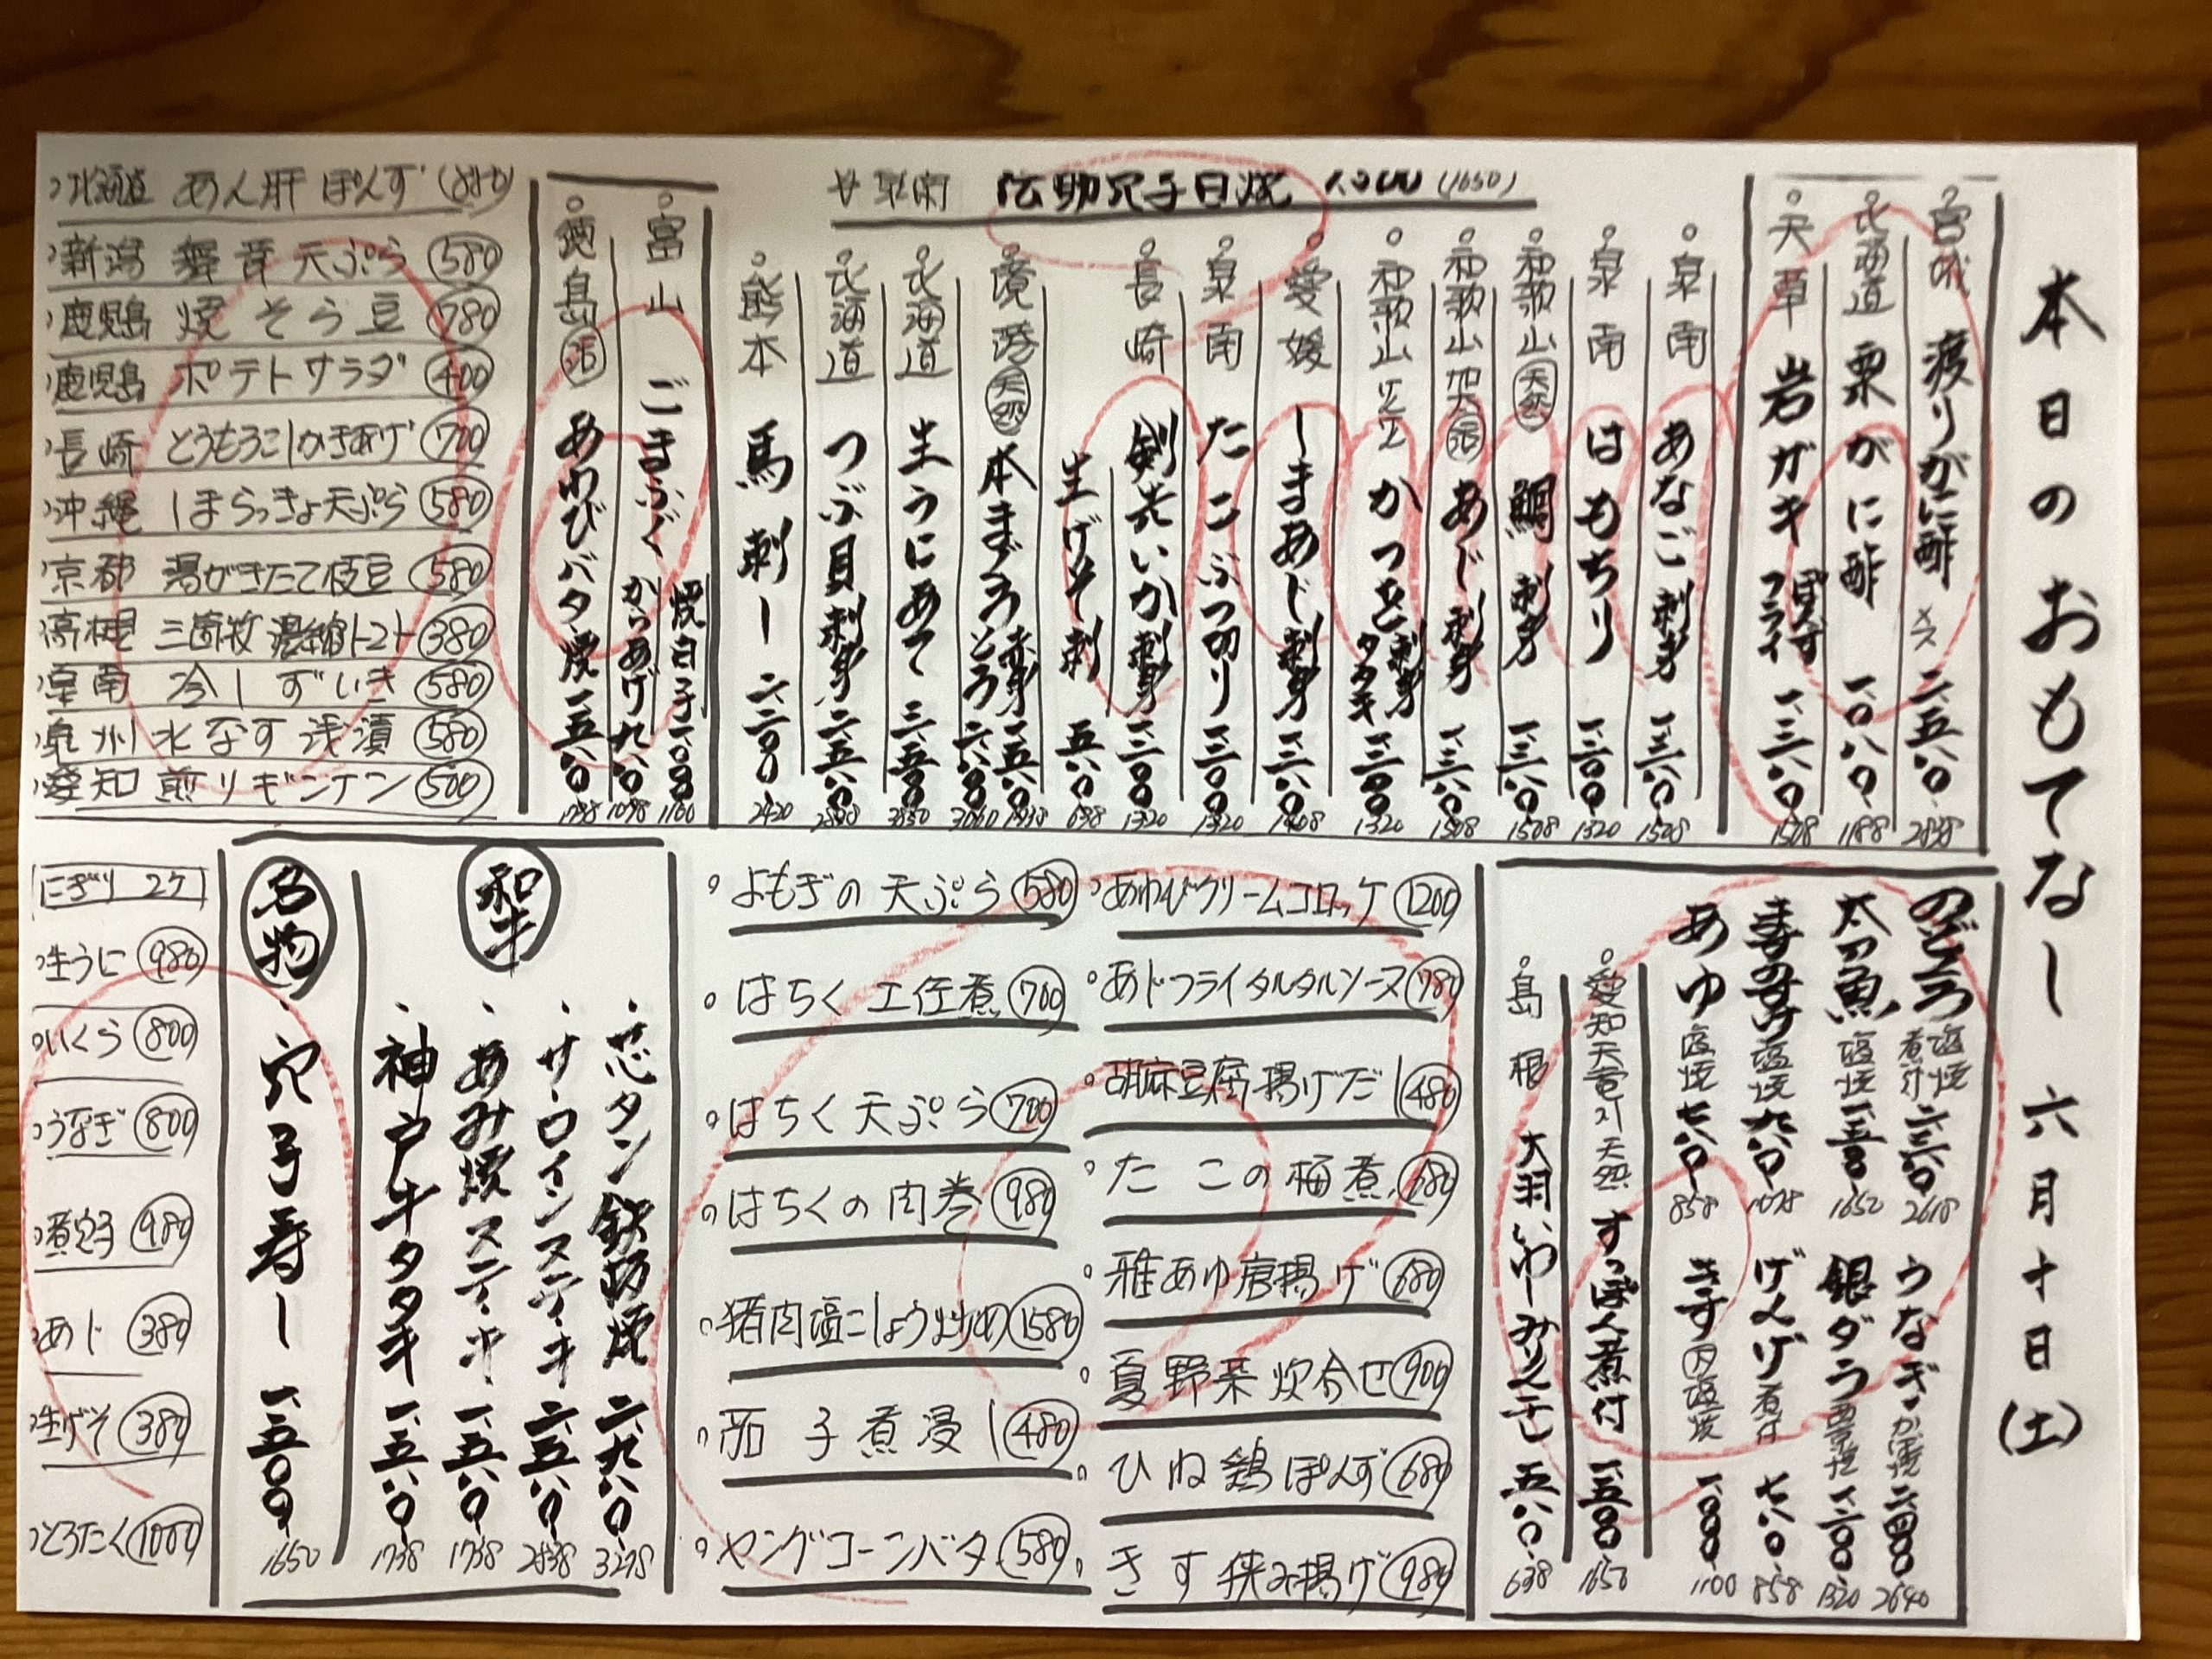 本日のおもてなし 六月十日(土)
宮城 渡りがに酢 メス 二、五八〇 2838
北海道 栗がに酢 一、〇八〇 1188
天草 岩ガキ ぽんず フライ 一、三八〇 1508
泉南 あなご刺身 一、三八〇 1508
泉南 はもちり 一、二〇〇 1320
和歌山 天然 鯛刺身 一、三八〇 1508
和歌山 加太 活 あじ刺身 一、三八〇 1508
和歌山 かつを 刺身 タタキ 一、二〇〇 1320
愛媛 しまあじ刺身 一、二八〇 1408
泉南 たこぶつ切り 一、二〇〇 1320
長崎 剣先いか刺身 一、二〇〇 1320
生げそ刺 五八〇 638
境港 天然 本まぐろ 赤身 一、五八〇 1738
とろ 二、六八〇
北海道 生うにあて 三、五〇〇 3850
北海道 つぶ貝刺身 二、五八〇 2838
熊本 馬刺し 二、二〇〇 2420
伝助穴子白焼 1,500 (1650)
富山 ごまふぐ 焼白子 一、〇〇〇 1100
からあげ 九八〇 1078
徳島 活 あわびバタ焼 一、五八〇 1738
北海道 あん肝ぽんず (880)
新潟 舞茸天ぷら 580
鹿児島 焼そら豆 780
鹿児島 ポテトサラダ 400
長崎 とうもろこしかきあげ 700
沖縄 しまらっきょ天ぷら 580
京都 湯がきたて枝豆 580
高槻 三箇牧 濃縮トマト 380
泉南 冷しずいき 580
泉州 水なす浅漬 580
愛知 煎りギンナン 500
のどぐろ 塩焼 煮汁 二、三八〇 2618
太刀魚 塩焼 一、五〇〇 1650
喜のすけ 塩焼 九八〇 1078
あゆ 塩焼 七八〇 858
うなぎ かば焼 二、四〇〇 2640
銀ダラ 西京焼 一、二〇〇 1320
げんげ 煮付 七八〇 858
きす 塩焼 一、〇〇〇 1100
愛知天竜川天然 すっぽん煮付 一、五〇〇 1650
島根 大羽いわしみりん干し 五八〇 638
あわびクリームコロッケ 1200
あじフライタルタルソース 780
胡麻豆腐揚げだし 480
たこの梅煮 680
稚あゆ唐揚げ 680
夏野菜炊合せ 900
ひね鶏ぽんず 680
きす挟み揚げ 980
よもぎの天ぷら 580
はちく土佐煮 700
はちく天ぷら 700
はちくの肉巻 980
猪肉塩こしょう炒め 1580
茄子煮浸し 480
ヤングコーンバタ 580
和牛
芯タン鉄板焼 二、九八〇 3278
サーロインステーキ 二、五八〇 2838
あみ焼ステーキ 一、五八〇 1738
神戸牛タタキ 一、五八〇 1738
名物
穴子寿し 一、五〇〇 1650
にぎり 2ケ
生うに 980
いくら 800
うなぎ 800
煮穴子 980
あじ 380
生げそ 380
とろたく 1000